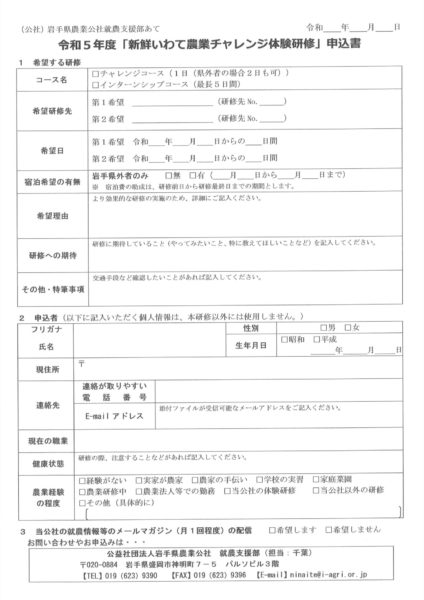 （公社）岩手県農業公社就農支援部あて　令和＿＿年＿＿月＿＿日
令和５年度「新鮮いわて農業チャレンジ体験研修」申込書
１　希望する研修
コース名
□チャレンジコース（１日（県外者の場合２日も可））
□インターンシップコース（最長５日間）
希望研修先
第１希望　＿＿＿＿＿＿＿＿（研修先 No.＿＿＿＿）
第２希望　＿＿＿＿＿＿＿＿（研修先 No.＿＿＿＿）
希望日
第１希望　令和＿＿年＿＿月＿＿日からの＿＿日間
第２希望　令和＿＿年＿＿月＿＿日からの＿＿日間
宿泊希望の有無
岩手県外者のみ　□無　□有（＿＿月＿＿日から＿＿月＿＿日まで）
※　宿泊費の助成は、研修前日から研修最終日までの期間とします。
希望理由
より効果的な研修の実施のため、詳細にご記入ください。
研修への期待
研修に期待していること（やってみたいこと、特に教えてほしいことなど）を記入してください。
その他・特筆事項
交通手段など確認したいことがあれば記入してください。
２　申込者（以下に記入いただく個人情報は、本研修以外には使用しません。）
フリガナ
氏名
性別
□男　□女
生年月日
□昭和　□平成
＿＿年＿＿月＿＿日
現住所
〒
連絡先
連絡が取りやすい
電話番号
E-mail アドレス
添付ファイルが受信可能なメールアドレスをご記入ください。
現在の職業
健康状態
研修の際、注意することなどがあれば記入してください。
農業経験
の程度
□経験がない　□実家が農家　□農家の手伝い　□学校の実習　□家庭菜園
□農業研修中　□農業法人等での勤務　□当公社の体験研修　□当公社以外の研修
□その他（具体的に）
３　当公社の就農情報等のメールマガジン（月１回程度）の配信　□希望します　□希望しません
お問い合わせやお申込みは・・・
公益社団法人岩手県農業公社　就農支援部（担当：千葉）
〒020−0884　岩手県盛岡市神明町７−５　パルソビル３階
【TEL】019（623）9390　【FAX】019（623）9396　【E-mail】ninaite@i-agri.or.jp